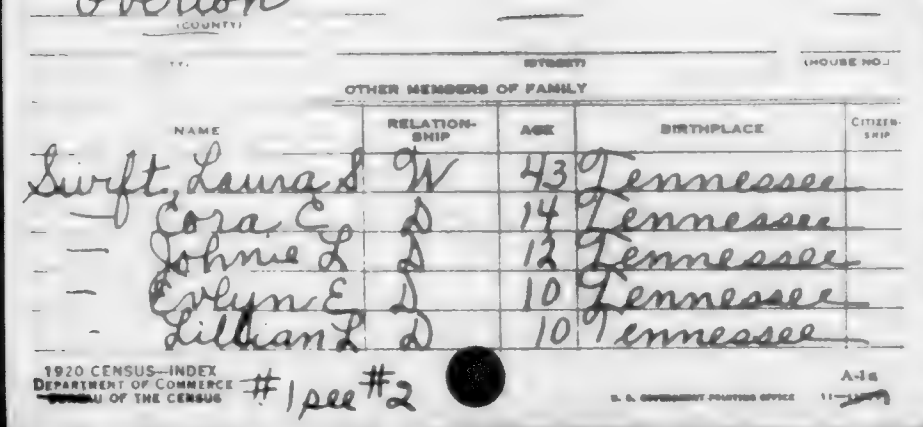 Overton
(COUNTY)
(STREET) (HOUSE NO.)
OTHER MEMBERS OF FAMILY
NAME RELATION-SHIP AGE BIRTHPLACE CITIZEN-SHIP
Swift, Laura S W 43 Tennessee
— Cora E D 14 Tennessee
— Johnie L D 12 Tennessee
— Evlyn E D 10 Tennessee
— Lillian L D 10 Tennessee
1920 CENSUS—INDEX
DEPARTMENT OF COMMERCE
BUREAU OF THE CENSUS
#1 see #2
A-1a
U. S. GOVERNMENT PRINTING OFFICE 11—